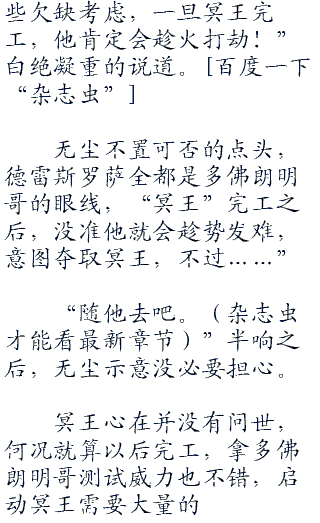 些欠缺考虑，一旦冥王完
工，他肯定会趁火打劫！”
白绝凝重的说道。[百度一下
“杂志虫”]
无尘不置可否的点头，
德雷斯罗萨全都是多佛朗明
哥的眼线，“冥王”完工之
后，没准他就会趁势发难，
意图夺取冥王，不过……”
“随他去吧。（杂志虫
才能看最新章节）”半响之
后，无尘示意没必要担心。
冥王心在并没有问世，
何况就算以后完工，拿多佛
朗明哥测试威力也不错，启
动冥王需要大量的